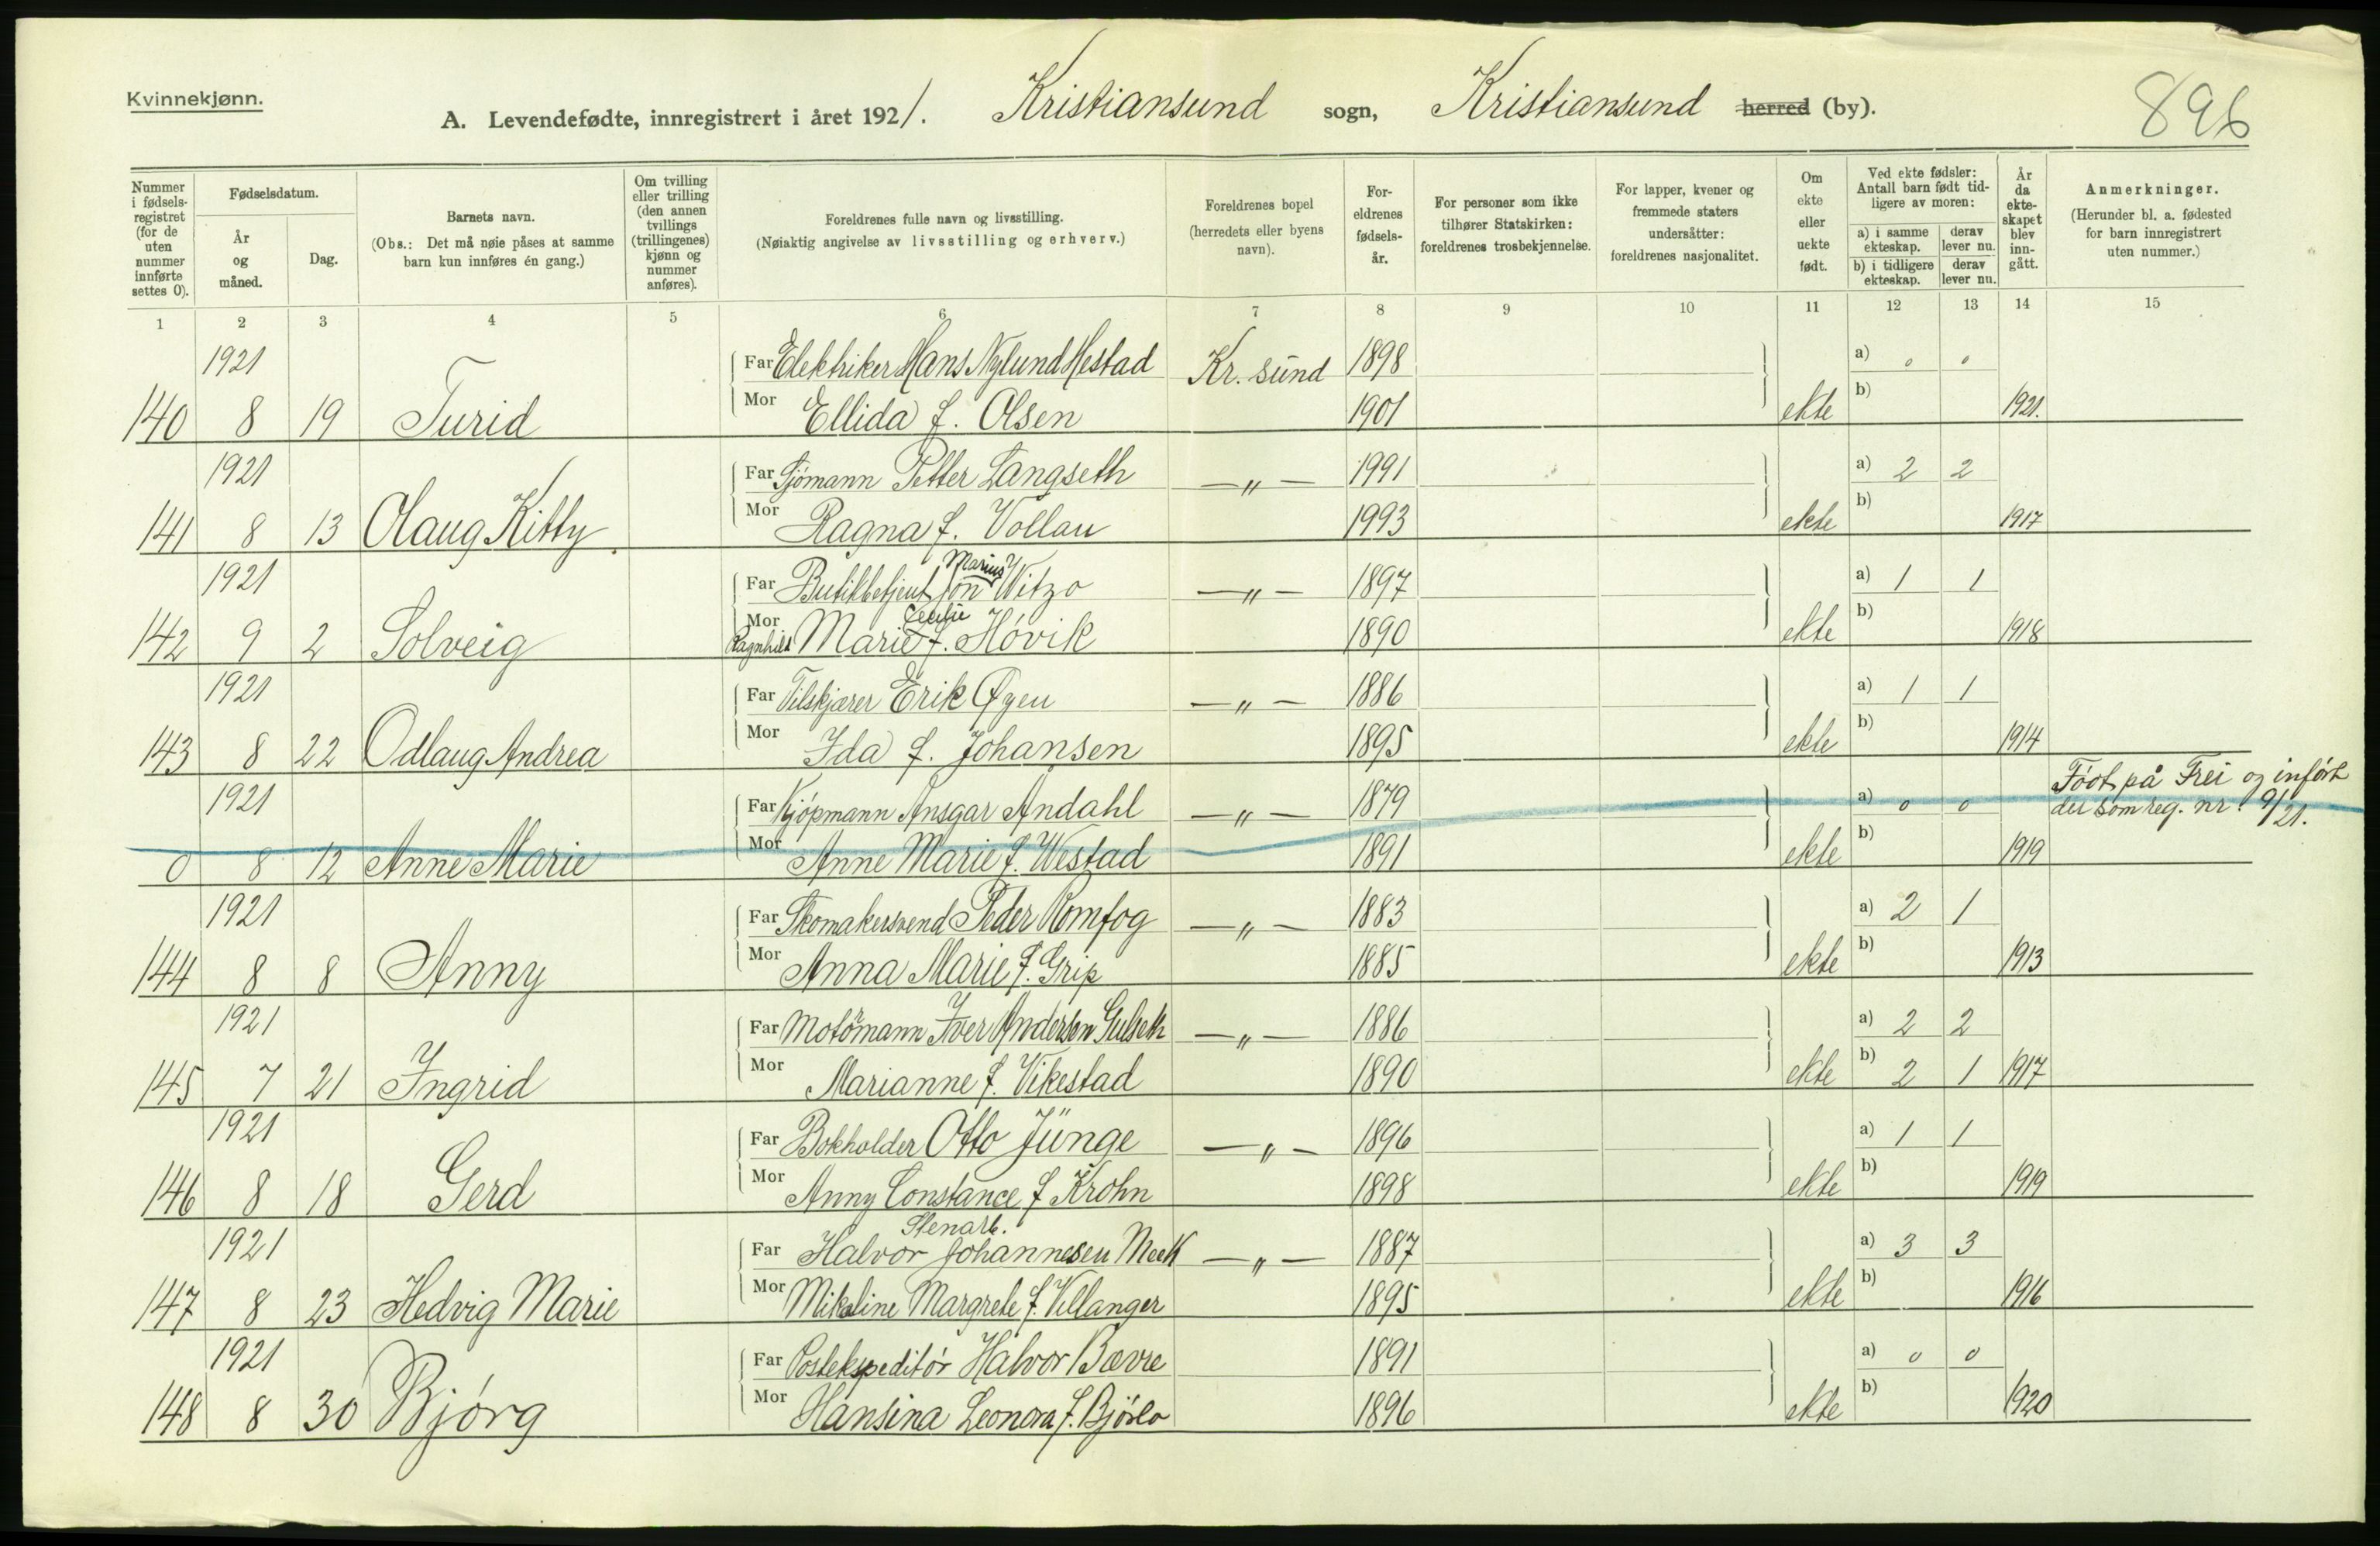 Kvinnekjønn.
A. Levendefødte, innregistrert i året 1921. Kristiansund sogn, Kristiansund herred (by).
896
Nummer i fødsels-registret (for de uten nummer innførte settes 0).
Fødselsdatum.
År og måned.
Dag.
Barnets navn.
(Obs.: Det må nøie påses at samme barn kun innføres én gang.)
Om tvilling eller trilling (den annen tvillings (trillingenes) kjønn og nummer anføres).
Foreldrenes fulle navn og livsstilling.
(Nøiaktig angivelse av livsstilling og erhverv.)
Foreldrenes bopel (herredets eller byens navn).
For-eldrenes fødsels-år.
For personer som ikke tilhører Statskirken: foreldrenes trosbekjennelse.
For lapper, kvener og fremmede staters undersåtter: foreldrenes nasjonalitet.
Om ekte eller uekte født.
Ved ekte fødsler: Antall barn født tid-ligere av moren:
a) i samme ekteskap. derav lever nu.
b) i tidligere ekteskap. derav lever nu.
År da ekte-skapet blev inn-gått.
Anmerkninger.
(Herunder bl. a. fødested for barn innregistrert uten nummer.)
1 2 3 4 5 6 7 8 9 10 11 12 13 14 15
1921 Far Elektriker Hans Nylund Hestad Kr. sund 1898 a) 0 0
140 8 19 Turid Mor Ellida f. Olsen 1901 ekte b) 1921.
1921 Far Sjómann Petter Langseth —„— 1991 a) 2 2
141 8 13 Olaug Kitty. Mor Ragna f. Vollan 1993 ekte b) 1917
1921 Far Butikbetjent Jon Marius Witzo —„— 1897 a) 1 1
142 9 2 Solveig Mor Ragnhild Marie Cecilie f. Hóvik 1890 ekte b) 1918
1921 Far Tilskjærer Erik Øyen —„— 1886 a) 1 1
143 8 22 Odlaug Andrea Mor Ida f. Johansen 1895 ekte b) 1914
1921 Far Kjópmann Ansgar Andahl —„— 1879 a) 0 0 Fódt på Frei og infórt
der som reg. nr. 9/21.
0 8 12 Anne Marie Mor Anne Marie f. Westad 1891 ekte b) 1919
1921 Far Skomakersvend Peder Romfog —„— 1883 a) 2 1
144 8 8 Anny Mor Anna Marie f. Grip 1885 ekte b) 1913
1921 Far Motormann Iver Andersen Gulseth —„— 1886 a) 2 2
145 7 21 Ingrid Mor Marianne f. Vikestad 1890 ekte b) 2 1 1917
1921 Far Bokholder Otto Jünge —„— 1896 a) 1 1
146 8 18 Gerd Mor Anny Constance f Krohn 1898 ekte b) 1919
Stenarb.
1921 Far Halvor Johannesen Meek —„— 1887 a) 3 3
147 8 23 Hedvig Marie Mor Mikaline Margrete f. Villanger 1895 ekte b) 1916
1921 Far Postekspeditór Halvor Bævre 1891 a) 0 0
148 8 30 Bjórg Mor Hansina Leonora f. 1896 ekte b) 1920